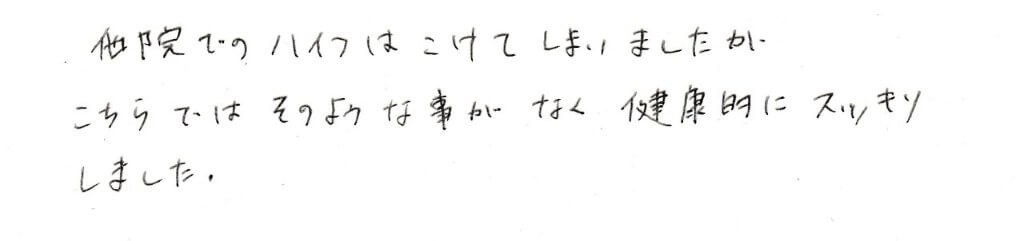 他院でのハイフはこけてしまいましたが
こちらではそのような事がなく健康的にスッキリ
しました.